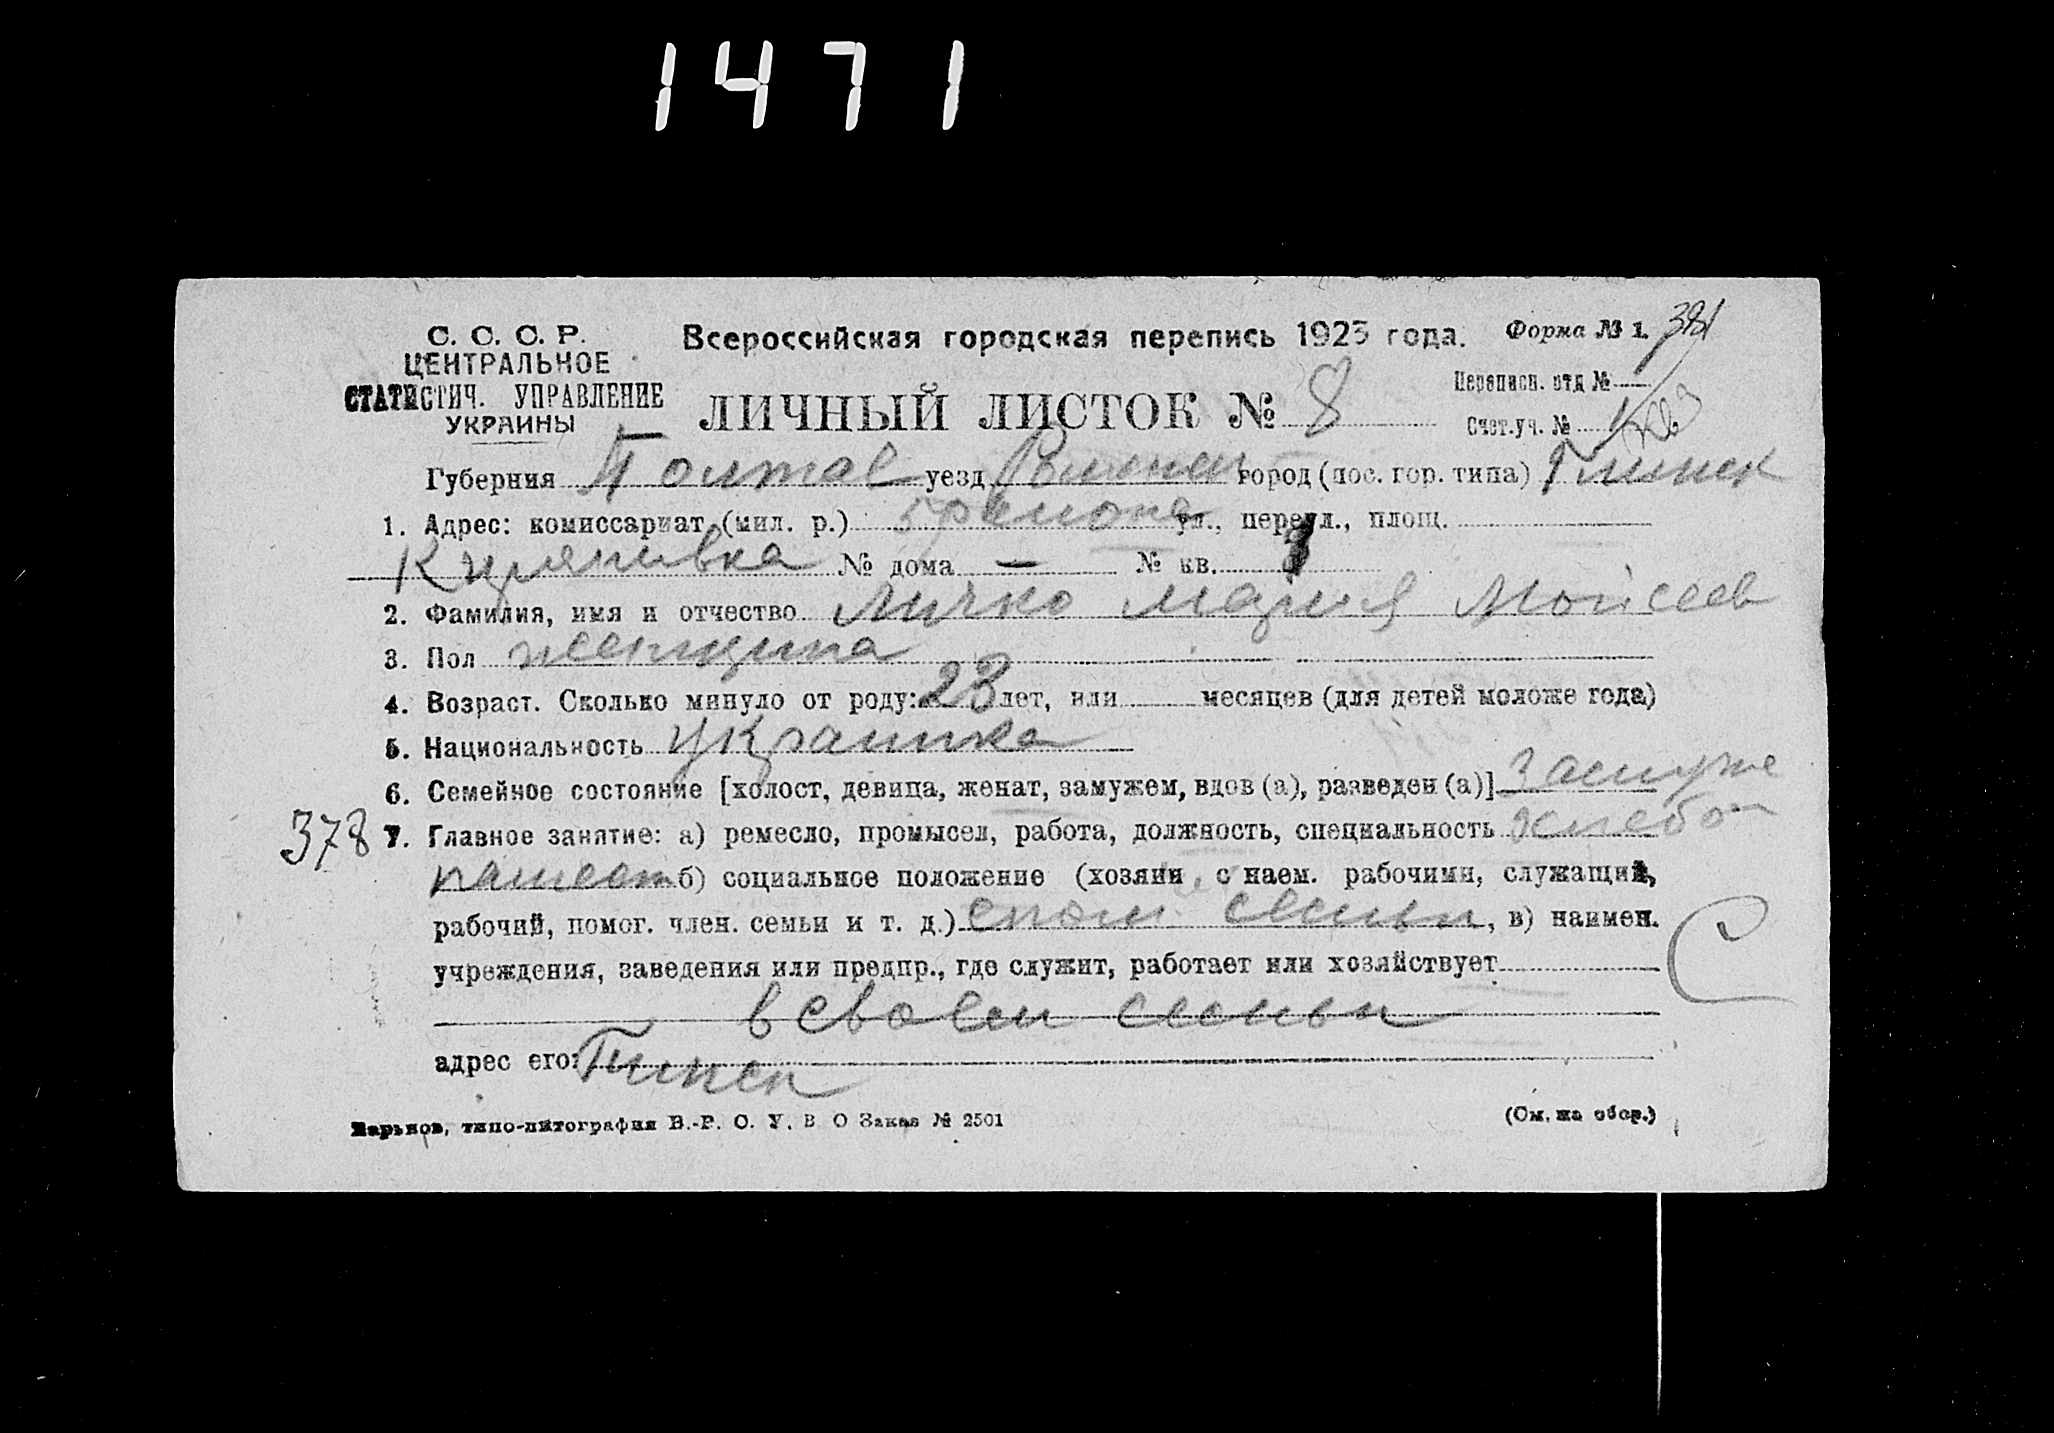 1471
С. С. С. Р.
ЦЕНТРАЛЬНОЕ
СТАТИСТИЧ. УПРАВЛЕНИЕ
УКРАИНЫ
Всероссийская городская перепись 1923 года.
Форма № 1.
ЛИЧНЫЙ ЛИСТОК № 8
Переписн. отд №
Счет.уч. №
Губерния Полтав уезд Роменск город (пос. гор. типа) Глинск
1. Адрес: комиссариат (мил. р.) района ул., переул., площ.
№ дома — № кв.
2. Фамилия, имя и отчество Личко Мария Моисеев
3. Пол женщина
4. Возраст. Сколько минуло от роду: 23 лет, или месяцев (для детей моложе года)
5. Национальность украинка
6. Семейное состояние [холост, девица, женат, замужем, вдов (а), разведен (а)] замуже
378 7. Главное занятие: а) ремесло, промысел, работа, должность, специальность хлебо-
пашест б) социальное положение (хозяин с наем. рабочими, служащий,
рабочий, помог. член. семьи и т. д.) семьи, в) наимен.
учреждения, заведения или предпр., где служит, работает или хозяйствует
в своем семьи
адрес его:
С
Харьков, типо-литография В.-Р. О. У. В О Заказ № 2501
(См. на обор.)